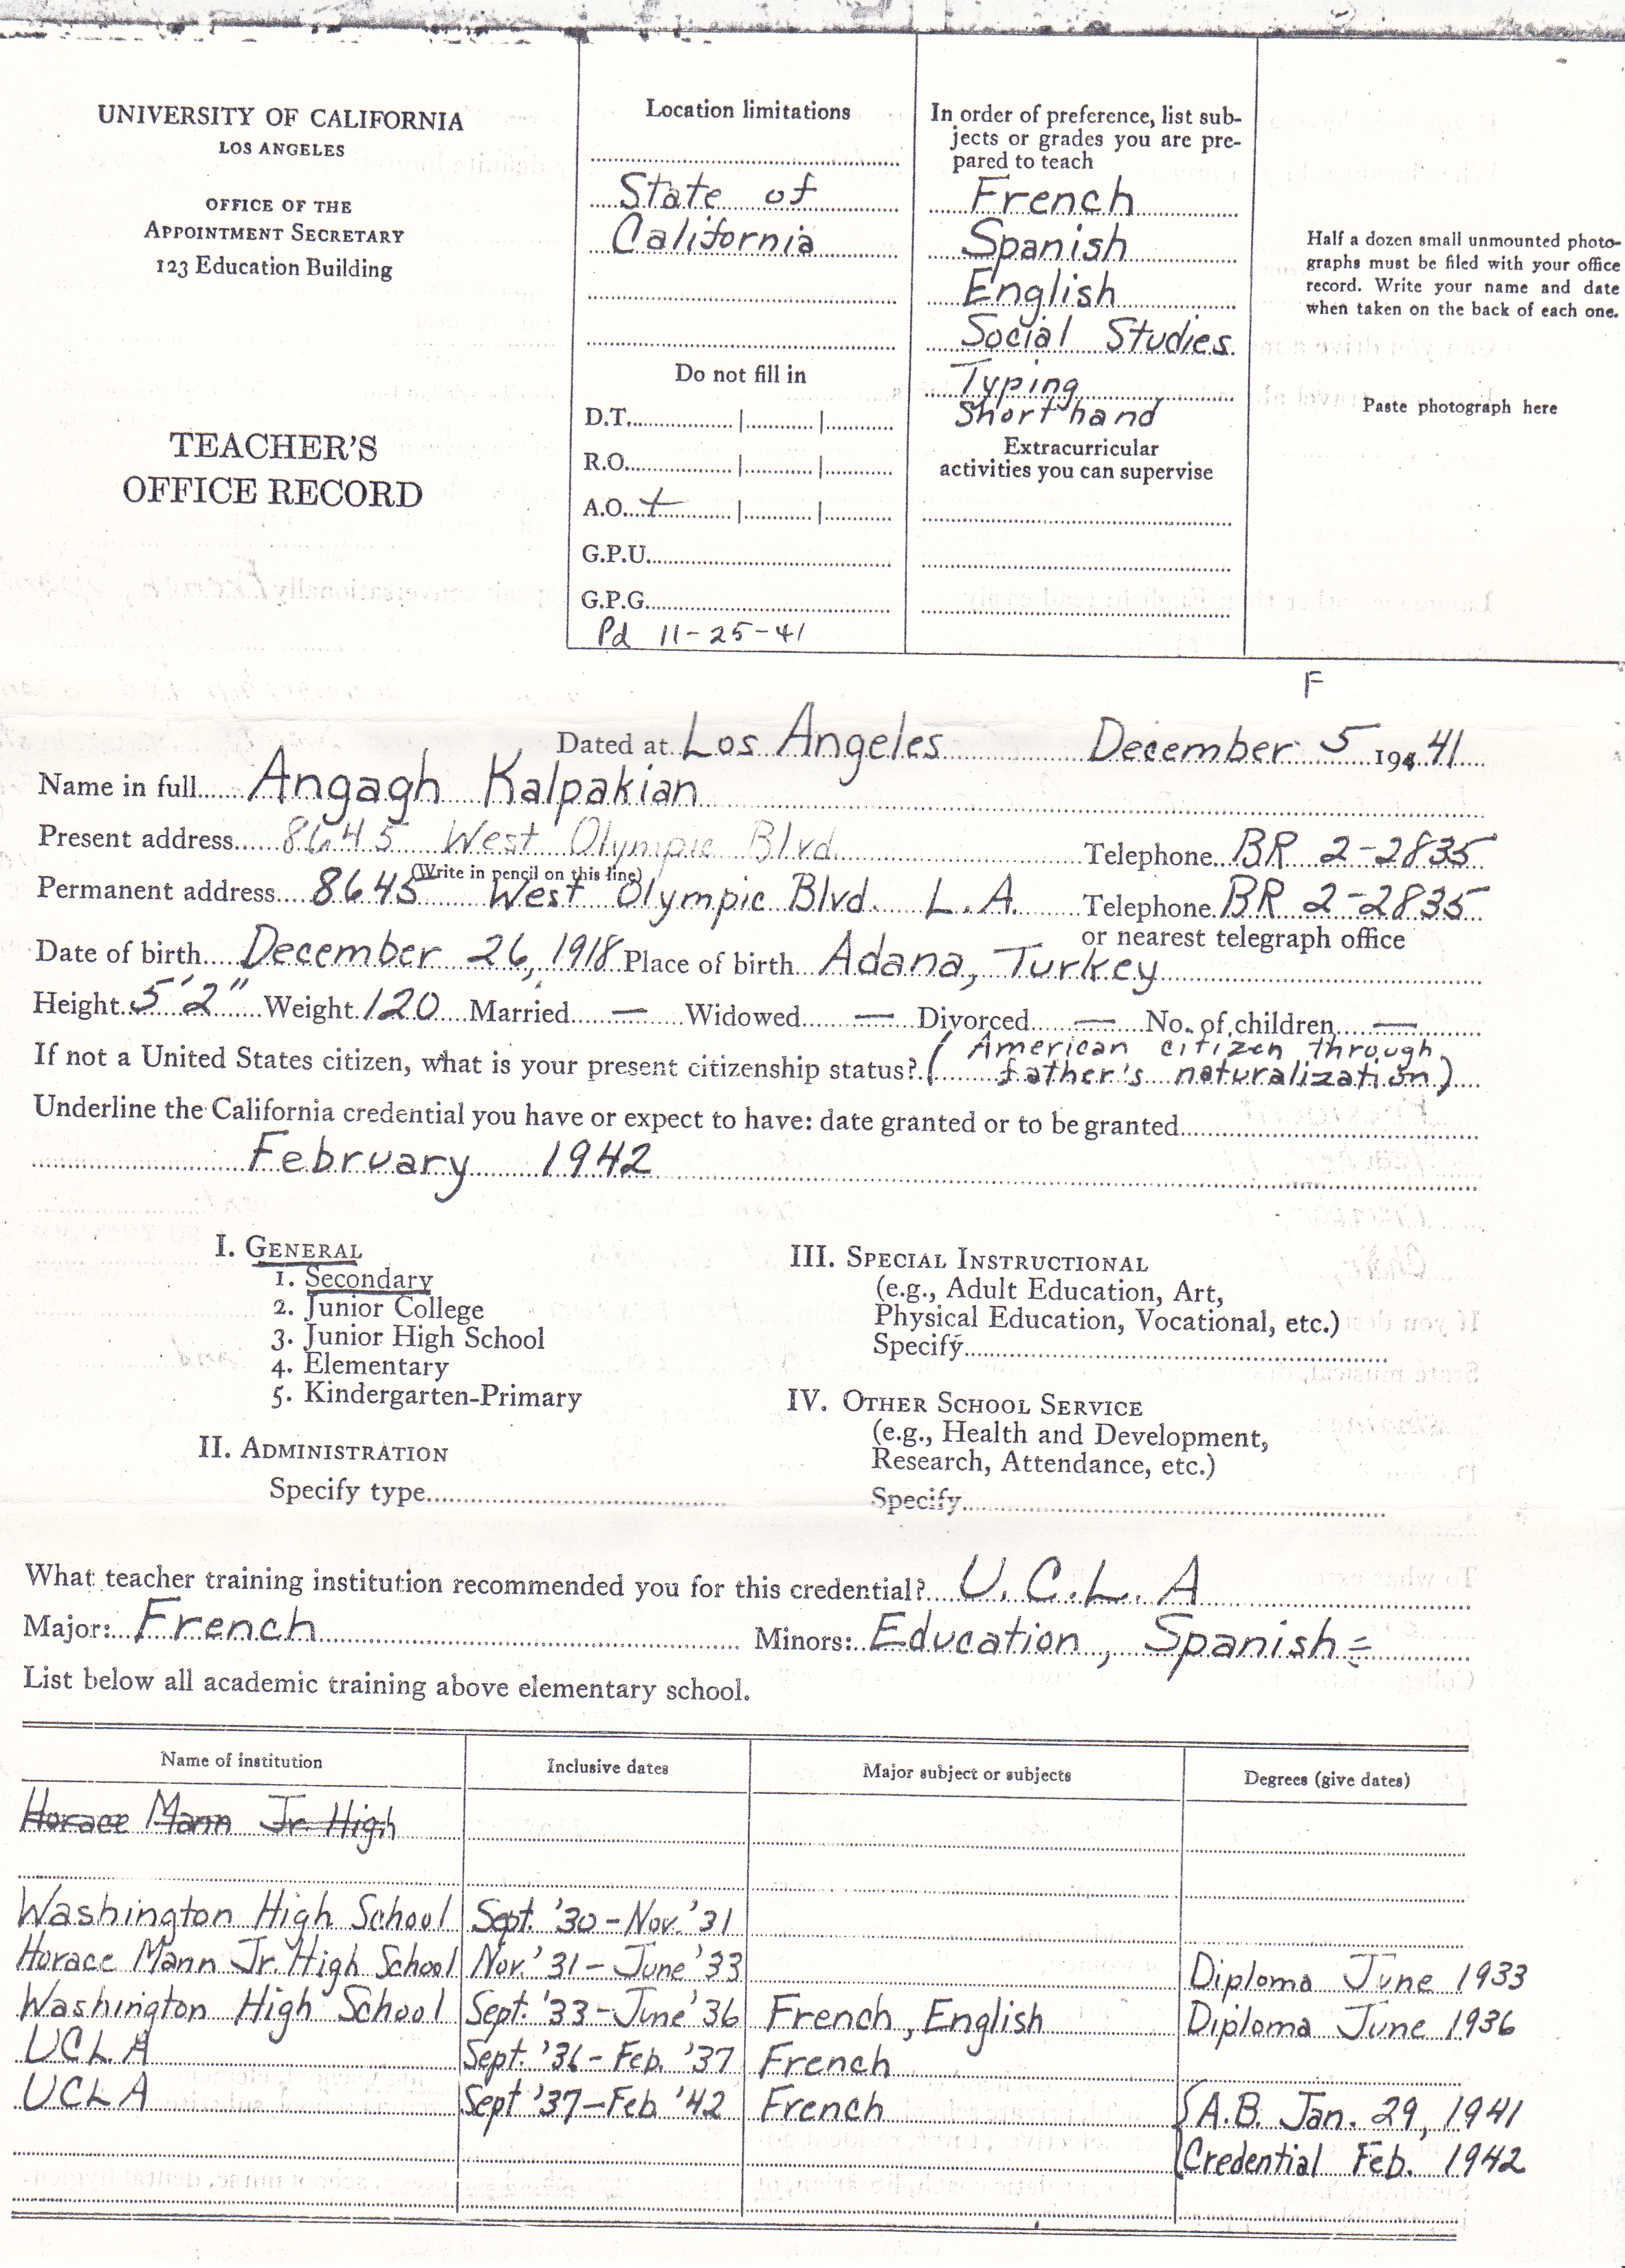 UNIVERSITY OF CALIFORNIA
LOS ANGELES
OFFICE OF THE
APPOINTMENT SECRETARY
123 Education Building
TEACHER'S
OFFICE RECORD
Location limitations
State of
California
Do not fill in
D.T.
R.O.
A.O. +
G.P.U.
G.P.G.
Pd 11-25-41
In order of preference, list sub-
jects or grades you are pre-
pared to teach
French
Spanish
English
Social Studies
Typing
Shorthand
Extracurricular
activities you can supervise
Half a dozen small unmounted photo-
graphs must be filed with your office
record. Write your name and date
when taken on the back of each one.
Paste photograph here
F
Dated at Los Angeles December 5 194 41
Name in full Angagh Kalpakian
Present address 8645 West Olympic Blvd. Telephone BR 2-2835
(Write in pencil on this line)
Permanent address 8645 West Olympic Blvd. L.A. Telephone BR 2-2835
or nearest telegraph office
Date of birth December 26, 1918 Place of birth Adana, Turkey
Height 5'2" Weight 120 Married — Widowed — Divorced — No. of children —
If not a United States citizen, what is your present citizenship status? (American citizen through
father's naturalization)
Underline the California credential you have or expect to have: date granted or to be granted
February 1942
I. GENERAL
1. Secondary
2. Junior College
3. Junior High School
4. Elementary
5. Kindergarten-Primary
II. ADMINISTRATION
Specify type
III. SPECIAL INSTRUCTIONAL
(e.g., Adult Education, Art,
Physical Education, Vocational, etc.)
Specify
IV. OTHER SCHOOL SERVICE
(e.g., Health and Development,
Research, Attendance, etc.)
Specify
What teacher training institution recommended you for this credential? U.C.L.A
Major: French Minors: Education, Spanish
List below all academic training above elementary school.
Name of institution Inclusive dates Major subject or subjects Degrees (give dates)
Horace Mann Jr. High
Washington High School Sept. '30 - Nov. '31
Horace Mann Jr. High School Nov. '31 - June '33 Diploma June 1933
Washington High School Sept. '33 - June '36 French, English Diploma June 1936
UCLA Sept. '36 - Feb. '37 French
UCLA Sept '37 - Feb '42 French {A.B. Jan. 29, 1941
Credential Feb. 1942